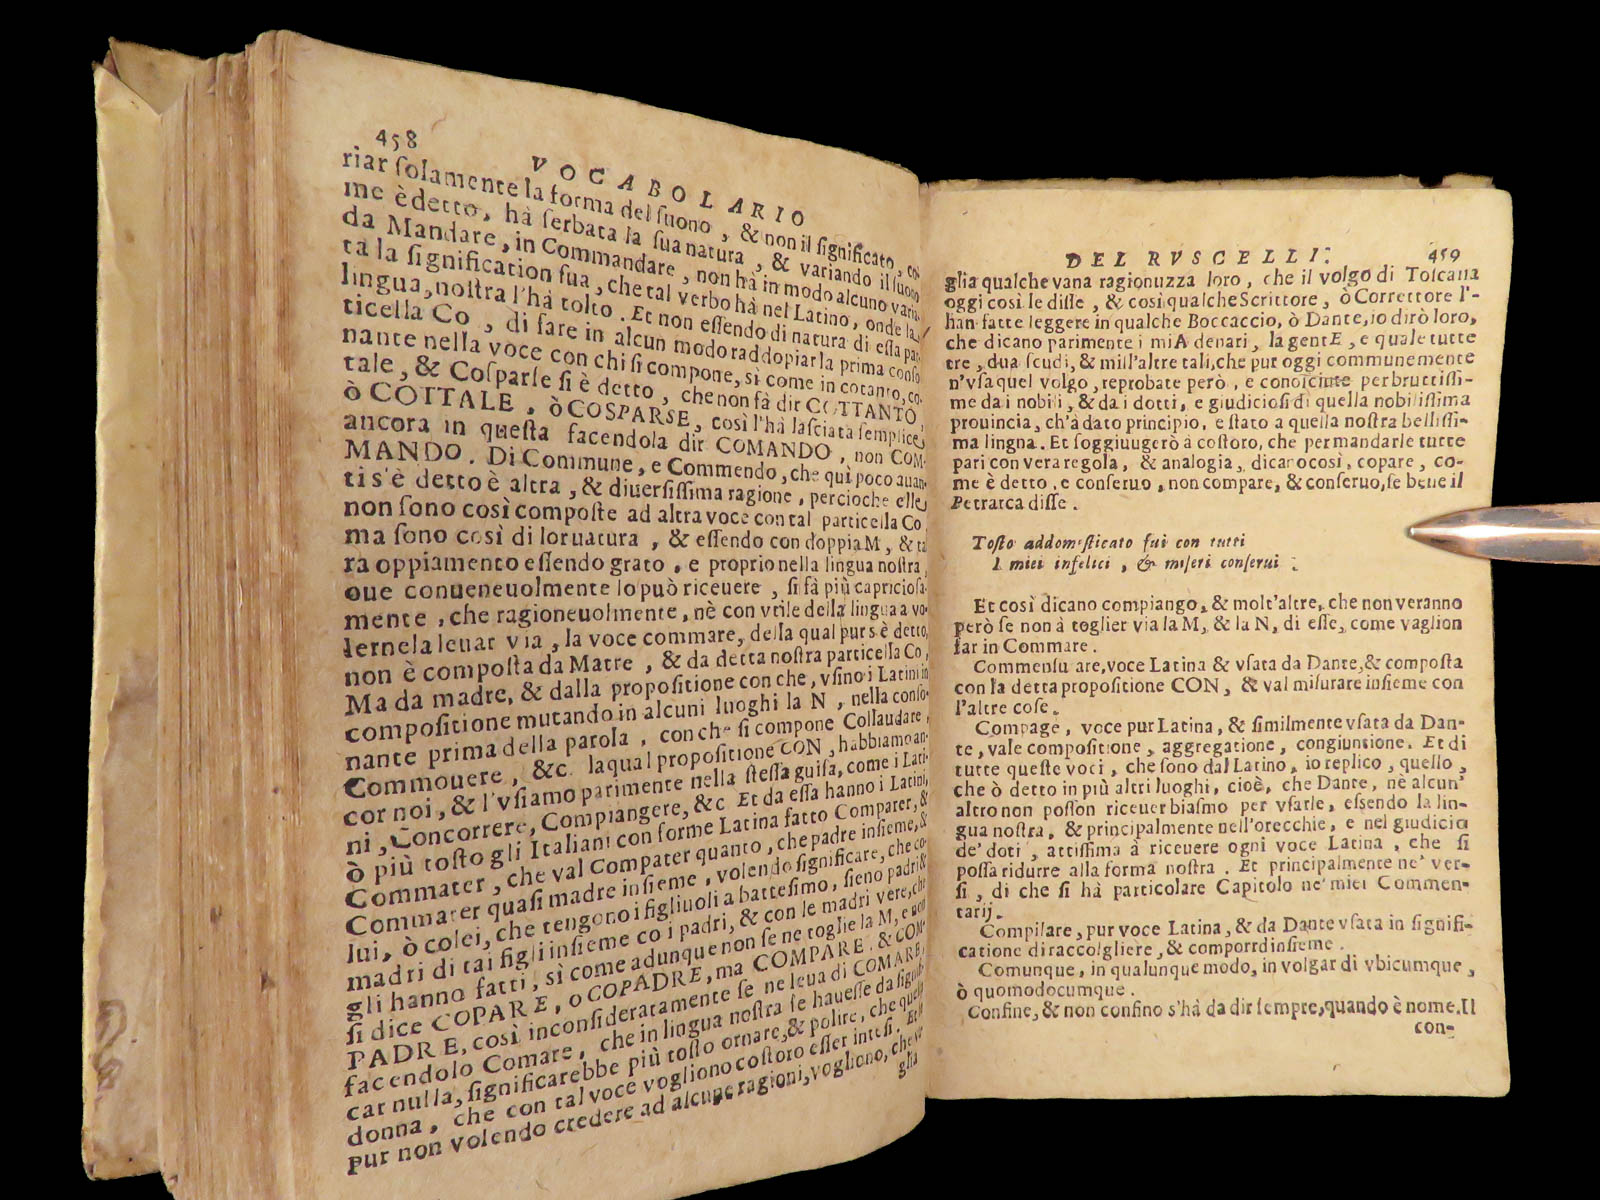 458
VOCABOLARIO
riar ſolamente la forma del ſuono, & non il ſignificato, co-
me è detto, hà ſerbata la ſua natura, & variando il ſuono
da Mandare, in Commandare, non hà in modo alcuno varia-
ta la ſignification ſua, che tal verbo hà nel Latino, onde la
lingua, noſtra l'hà tolto. Et non eſſendo di natura di eſſa par-
ticella Co, di fare in alcun modo raddopiar la prima conſo
nante nella voce con chi ſi compone, sì come in cotanto, co-
tale, & Coſparſe ſi è detto, che non fà dir COTTANTO,
ò COTTALE, ò COSPARSE, così l'hà laſciata ſemplice,
ancora in queſta facendola dir COMANDO, non COM-
MANDO. Di Commune, e Commendo, che quì poco auan-
ti s'è detto è altra, & diuerſiſſima ragione, percioche elle
non ſono così compoſte ad altra voce con tal particella Co,
ma ſono così di lor uatura, & eſſendo con doppia M, & ta
ra oppiamento eſſendo grato, e proprio nella lingua noſtra,
oue conueneuolmente lo può riceuere, ſi fà più capricioſa-
mente, che ragioneuolmente, nè con vtile della lingua a vo-
lernela leuar via, la voce commare, della qual pur s'è detto,
non è compoſta da Matre, & da detta noſtra particella Co,
Ma da madre, & dalla propoſitione con che, vſino i Latini in
compoſitione mutando in alcuni luoghi la N, nella conſo-
nante prima della parola, con che ſi compone Collaudare,
Commouere, &c. la qual propoſitione CON, habbiamo an-
cor noi, & l'vſiamo parimente nella ſteſſa guiſa, come i Lati-
ni, Concorrere, Compiangere, &c Et da eſſa hanno i Latini,
ò più toſto gli Italiani con forme Latina fatto Compater, &
Commater, che val Compater quanto, che padre inſieme, &
Commater quaſi madre inſieme, volendo ſignificare, che co-
lui, ò colei, che tengono i figliuoli a batteſimo, ſieno padri &
madri di tai figli inſieme co i padri, & con le madri vere, che
gli hanno fatti, sì come adunque non ſe ne toglie la M, e non
ſi dice COPARE, o COPADRE, ma COMPARE, & COM-
PADRE, così inconſideratamente ſe ne leua di COMARE,
facendolo Comare, che in lingua noſtra ſe haueſſe da ſignifi-
car nulla, ſignificarebbe più toſto ornare, & polire, che quella
donna, che con tal voce vogliono coſtoro eſſer inteſi. Et ſe
pur non volendo credere ad alcune ragioni, vogliono, che va-
glia
DEL RVSCELLI. 459
glia qualche vana ragionuzza loro, che il volgo di Toſcana
oggi così le diſſe, & così qualche Scrittore, ò Correttore l'-
han fatte leggere in qualche Boccaccio, ò Dante, io dirò loro,
che dicano parimente i miA denari, la gentE, e quale tutte
tre, dua ſcudi, & mill'altre tali, che pur oggi communemente
n'vſa quel volgo, reprobate però, e conoſciute per bruttiſſi-
me da i nobili, & da i dotti, e giudicioſi di quella nobiliſſima
prouincia, ch'à dato principio, e ſtato a quella noſtra belliſſi-
ma lingna. Et ſoggiuugerò à coſtoro, che per mandarle tutte
pari con vera regola, & analogia, dicano così, copare, co-
me è detto, e conſeruo, non compare, & conſeruo, ſe bene il
Petrarca diſſe.
Toſto addomeſticato fui con tutti
I miei infelici, & miſeri conſerui.
Et così dicano compiango, & molt'altre, che non veranno
però ſe non à toglier via la M, & la N, di eſſe, come vaglion
far in Commare.
Commenſu are, voce Latina & vſata da Dante, & compoſta
con la detta propoſitione CON, & val miſurare inſieme con
l'altre coſe.
Compage, voce pur Latina, & ſimilmente vſata da Dan-
te, vale compoſitione, aggregatione, congiuntione. Et di
tutte queſte voci, che ſono dal Latino, io replico, quello,
che ò detto in più altri luoghi, cioè, che Dante, nè alcun'
altro non poſſon riceuer biaſmo per vſarle, eſſendo la lin-
gua noſtra, & principalmente nell'orecchie, e nel giudicio
de' doti, attiſſima à riceuere ogni voce Latina, che ſi
poſſa ridurre alla forma noſtra. Et principalmente ne' ver-
ſi, di che ſi hà particolare Capitolo ne' miei Commen-
tarij.
Compilare, pur voce Latina, & da Dante vſata in ſignifi-
catione di raccolgliere, & comporrd inſieme.
Comunque, in qualunque modo, in volgar di vbicumque,
ò quomodocumque.
Confine, & non confino s'hà da dir ſempre, quando è nome. Il
con-